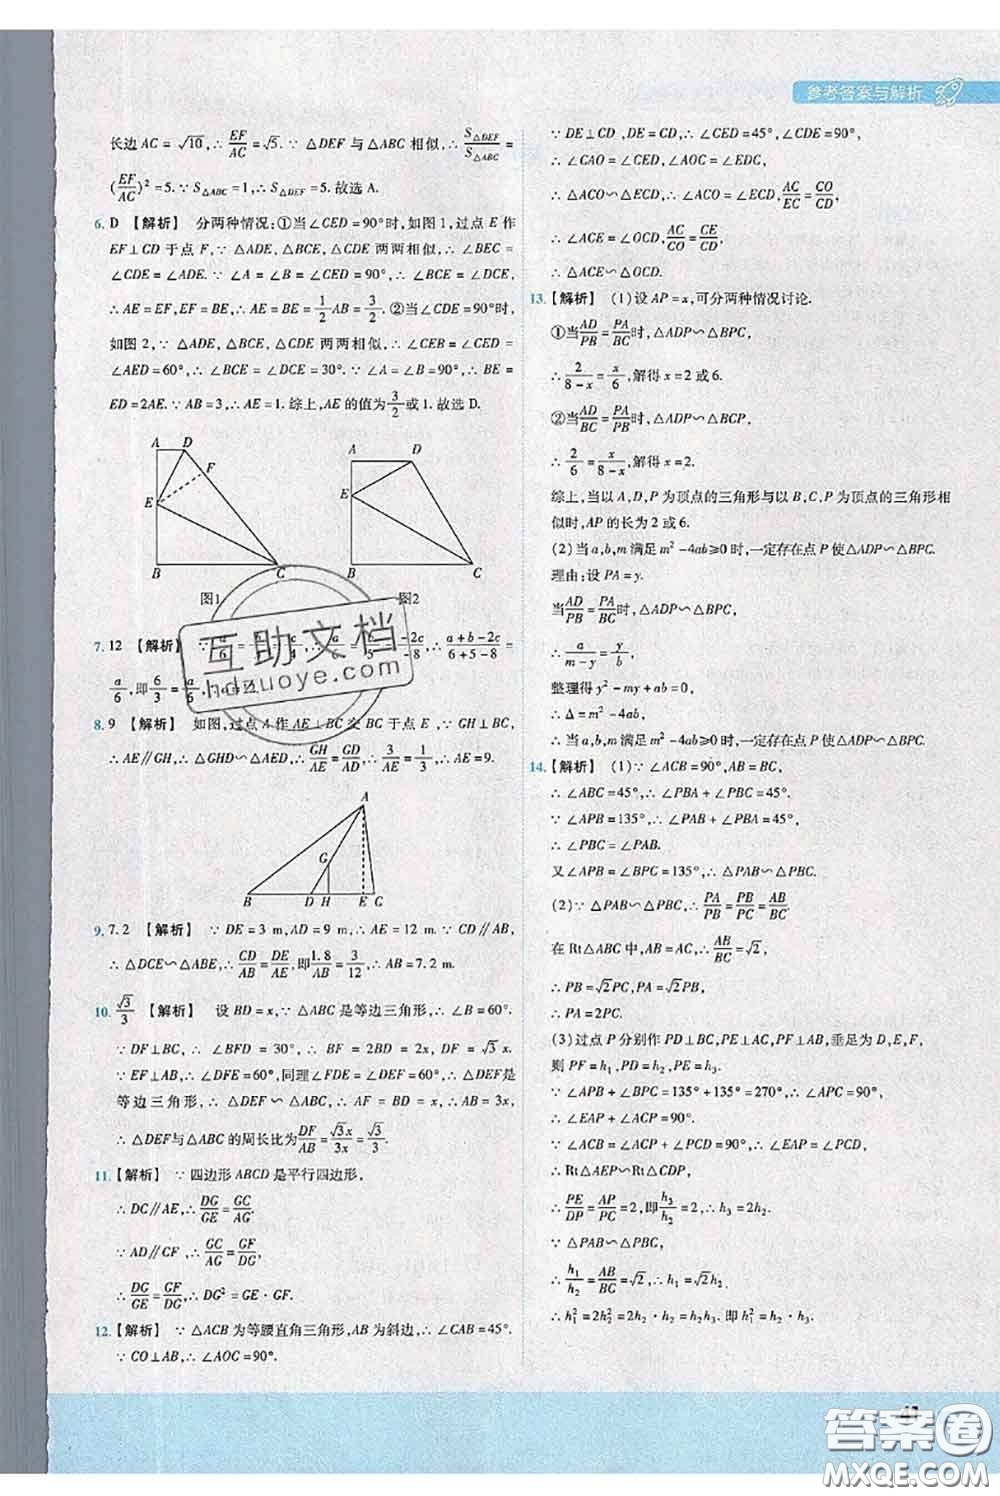 参考答案与解析
长边 AC = √10, ∴ EF/AC = √5. ∵ △DEF 与 △ABC 相似, ∴ S△DEF/S△ABC =
(EF/AC)² = 5. ∵ S△ABC = 1, ∴ S△DEF = 5. 故选 A.
6. D 【解析】 分两种情况:①当∠CED = 90°时,如图1,过点 E 作
EF⊥CD 于点 F, ∵ △ADE, △BCE, △CDE 两两相似, ∴ ∠BEC
= ∠CDE = ∠ADE. ∵ ∠A = ∠B = ∠CED = 90°, ∴ ∠BCE = ∠DCE,
∴ AE = EF, EF = BE, ∴ AE = BE = 1/2 AB = 3/2. ②当∠CDE = 90°时,
如图 2, ∵ △ADE, △BCE, △CDE 两两相似, ∴ ∠CEB = ∠CED =
∠AED = 60°, ∴ ∠BCE = ∠DCE = 30°. ∵ ∠A = ∠B = 90°, ∴ BE =
ED = 2AE. ∵ AB = 3, ∴ AE = 1. 综上, AE 的值为 3/2 或 1. 故选 D.
A D F E B C
图1
A D E B C
图2
7. 12 【解析】
8. 9 【解析】 如图,过点 A 作 AE⊥BC 交 BC 于点 E, ∵ GH⊥BC,
∴ AE∥GH, ∴ △GHD∽△AED, ∴ GH/AE = GD/AD, ∴ 3/AE = 1/3, ∴ AE = 9.
A G B D H E C
9. 7.2 【解析】 ∵ DE = 3 m, AD = 9 m, ∴ AE = 12 m. ∵ CD∥AB,
∴ △DCE∽△ABE, ∴ CD/AB = DE/AE, 即 1.8/AB = 3/12, ∴ AB = 7.2 m.
10. √3/3 【解析】 设 BD = x, ∵ △ABC 是等边三角形, ∴ ∠B = 60°.
∵ DF⊥BC, ∴ ∠BFD = 30°, ∴ BF = 2BD = 2x, DF = √3 x.
∵ EF⊥AB, ∴ ∠DFE = 60°, 同理∠FDE = ∠FED = 60°, ∴ △DEF 是
等边三角形, ∴ △DEF∽△ABC, ∴ AF = BD = x, ∴ AB = 3x,
∴ △DEF与△ABC 的周长比为 DF/AB = √3x/3x = √3/3.
11. 【解析】 ∵ 四边形 ABCD 是平行四边形,
∴ DC∥AE, ∴ DG/GE = GC/AG.
∵ AD∥CF, ∴ GC/AG = GF/DG,
∴ DG/GE = GF/DG, ∴ DG² = GE·GF.
12. 【解析】 ∵ △ACB 为等腰直角三角形, AB 为斜边, ∴ ∠CAB = 45°.
∵ CO⊥AB, ∴ ∠AOC = 90°.
∵ DE⊥CD, DE = CD, ∴ ∠CED = 45°, ∠CDE = 90°,
∴ ∠CAO = ∠CED, ∠AOC = ∠EDC,
∴ △ACO∽△ECD, ∴ ∠ACO = ∠ECD, AC/EC = CO/CD,
∴ ∠ACE = ∠OCD, AC/CO = CE/CD,
∴ △ACE∽△OCD.
13. 【解析】 (1)设 AP = x, 可分两种情况讨论.
①当 AD/PB = PA/BC 时, △ADP∽△BPC,
∴ 2/(8-x) = x/6, 解得 x = 2 或 6.
②当 AD/BC = PA/PB 时, △ADP∽△BCP,
∴ 2/6 = x/(8-x), 解得 x = 2.
综上,当以 A, D, P 为顶点的三角形与以 B, C, P 为顶点的三角形相
似时, AP 的长为 2 或 6.
(2)当 a, b, m 满足 m² - 4ab≥0 时,一定存在点 P 使△ADP∽△BPC.
理由:设 PA = y.
当 AD/PB = PA/BC 时, △ADP∽△BPC,
∴ a/(m-y) = y/b,
整理得 y² - my + ab = 0,
∴ Δ = m² - 4ab,
∴ 当 a, b, m 满足 m² - 4ab≥0 时,一定存在点 P 使△ADP∽△BPC.
14. 【解析】 (1) ∵ ∠ACB = 90°, AB = BC,
∴ ∠ABC = 45°, ∴ ∠PBA + ∠PBC = 45°.
∵ ∠APB = 135°, ∴ ∠PAB + ∠PBA = 45°,
∴ ∠PBC = ∠PAB.
又∠APB = ∠BPC = 135°, ∴ △PAB∽△PBC.
(2) ∵ △PAB∽△PBC, ∴ PA/PB = PB/PC = AB/BC.
在 Rt△ABC 中, AB = AC, ∴ AB/BC = √2,
∴ PB = √2PC, PA = √2PB,
∴ PA = 2PC.
(3)过点 P 分别作 PD⊥BC, PE⊥AC, PF⊥AB, 垂足为 D, E, F,
则 PF = h₁, PD = h₂, PE = h₃.
∵ ∠APB + ∠BPC = 135° + 135° = 270°, ∴ ∠APC = 90°,
∴ ∠EAP + ∠ACP = 90°.
∵ ∠ACB = ∠ACP + ∠PCD = 90°, ∴ ∠EAP = ∠PCD,
∴ Rt△AEP∽Rt△CDP,
∴ PE/DP = AP/PC = 2, 即 h₃/h₂ = 2, ∴ h₃ = 2h₂.
∵ △PAB∽△PBC,
∴ h₁/h₂ = AB/BC = √2, ∴ h₁ = √2h₂,
∴ h₁² = 2h₂² = 2h₂·h₂ = h₂h₃. 即 h₁² = h₂·h₃.
互助文档
hdzuoye.com
41
答案圈
MXQE.COM